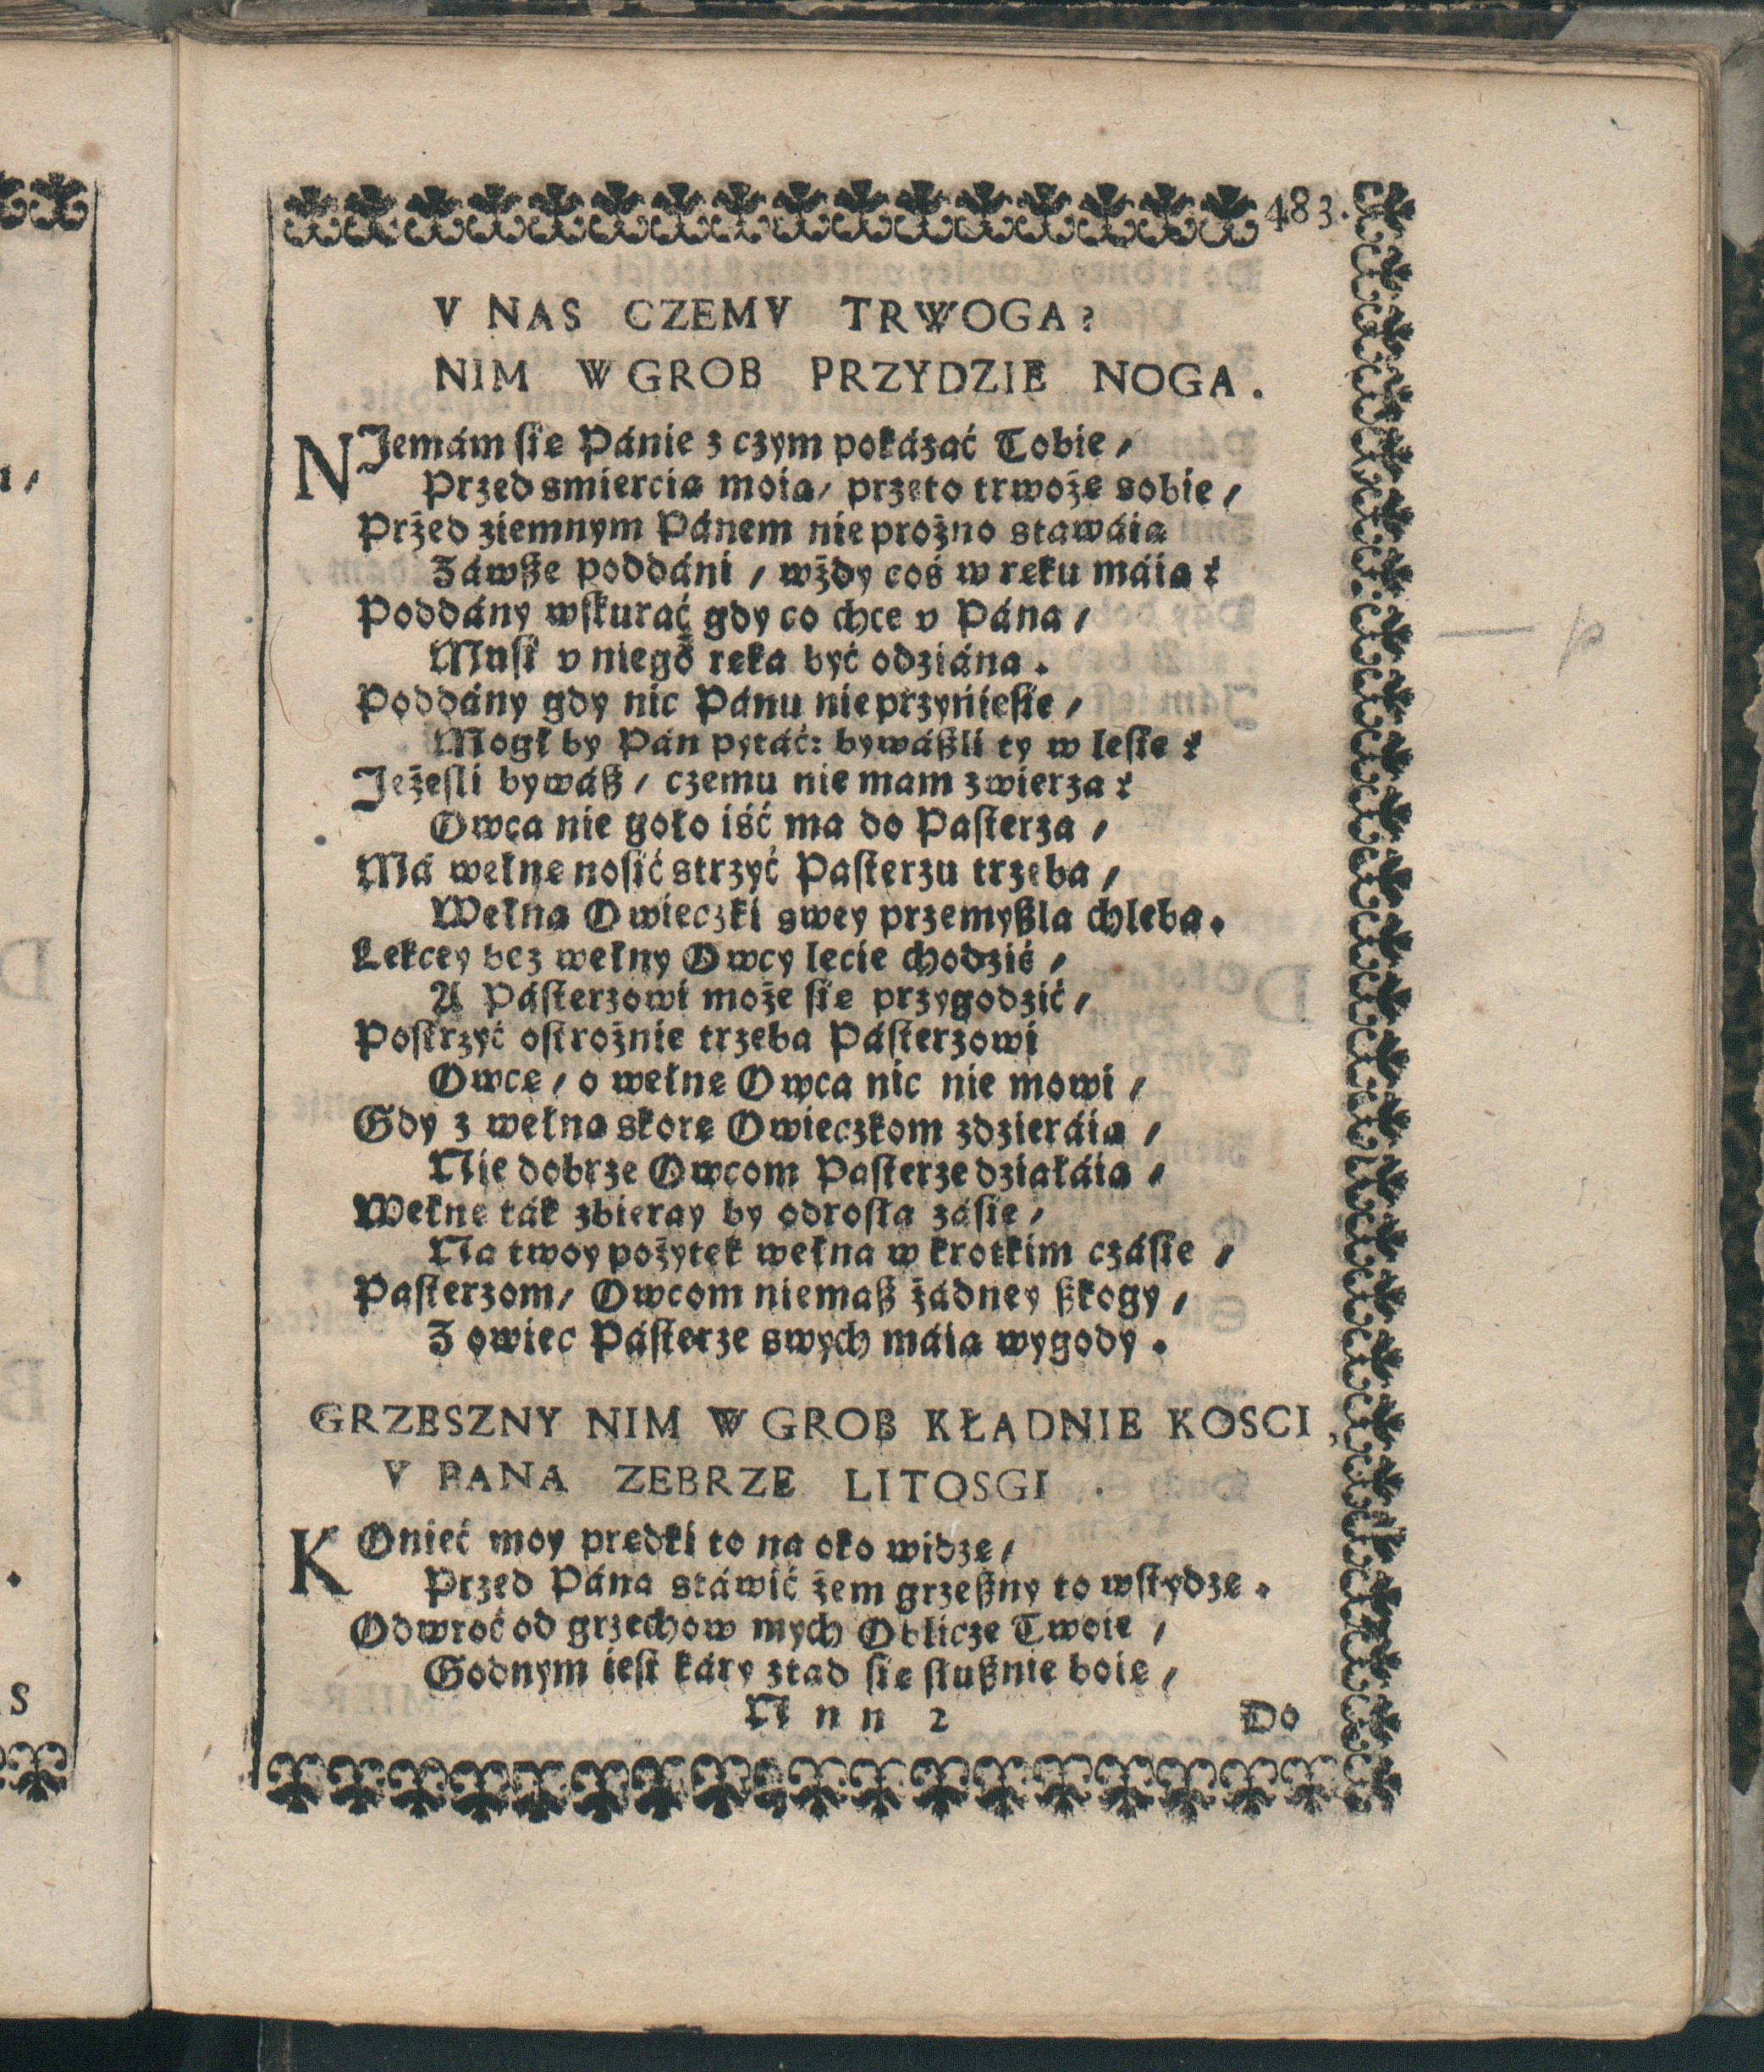 483.
V NAS CZEMV TRWOGA?
NIM W GROB PRZYDZIE NOGA.
NJemám ſię Pánie z czym pokázáć Tobie /
Przed smiercią moią / przeto trwożę sobie /
Przed ziemnym Pánem nie prożno stawáią
Záwße poddáni / wżdy coś w ręku máią?
Poddány wſkurać gdy co chce v Páná /
Muſi v niego ręká być odziána.
Poddány gdy nic Pánu nie przynieſie /
Mogł by Pán pytáć: bywáßli ty w leſie?
Jeżeſli bywáß / czemu nie mam zwierza?
Owca nie goło iść ma do Paſterza /
Má wełnę noſić strzyć Paſterzu trzeba /
Wełną Owieczki swey przemyßla chleba.
Lekcey bez wełny Owcy lecie chodzić /
A Páſterzowi może ſię przygodzić /
Poſtrzyć oſtrożnie trzeba Páſterzowi
Owce / o wełnę Owca nic nie mowi /
Gdy z wełną skorę Owieczkom zdzieráią /
Nie dobrze Owcom Paſterze działáią /
Wełnę ták zbieray by odroſła záſię /
Na twoy pożytek wełna w krotkim czáſie /
Paſterzom / Owcom niemaß żadney ßkogy /
Z owiec Páſterze swych máią wygody.
GRZESZNY NIM W GROB KŁADNIE KOSCI,
V PANA ZEBRZE LITOSGI.
KOnieć moy prędki to na oko widzę /
Przed Páná stáwić żem grzeßny to wſtydzę.
Odwroć od grzechow mych Oblicze Twoie /
Godnym ieſt káry ztąd ſię ſłußnie boię /
Nnn 2
Do
S